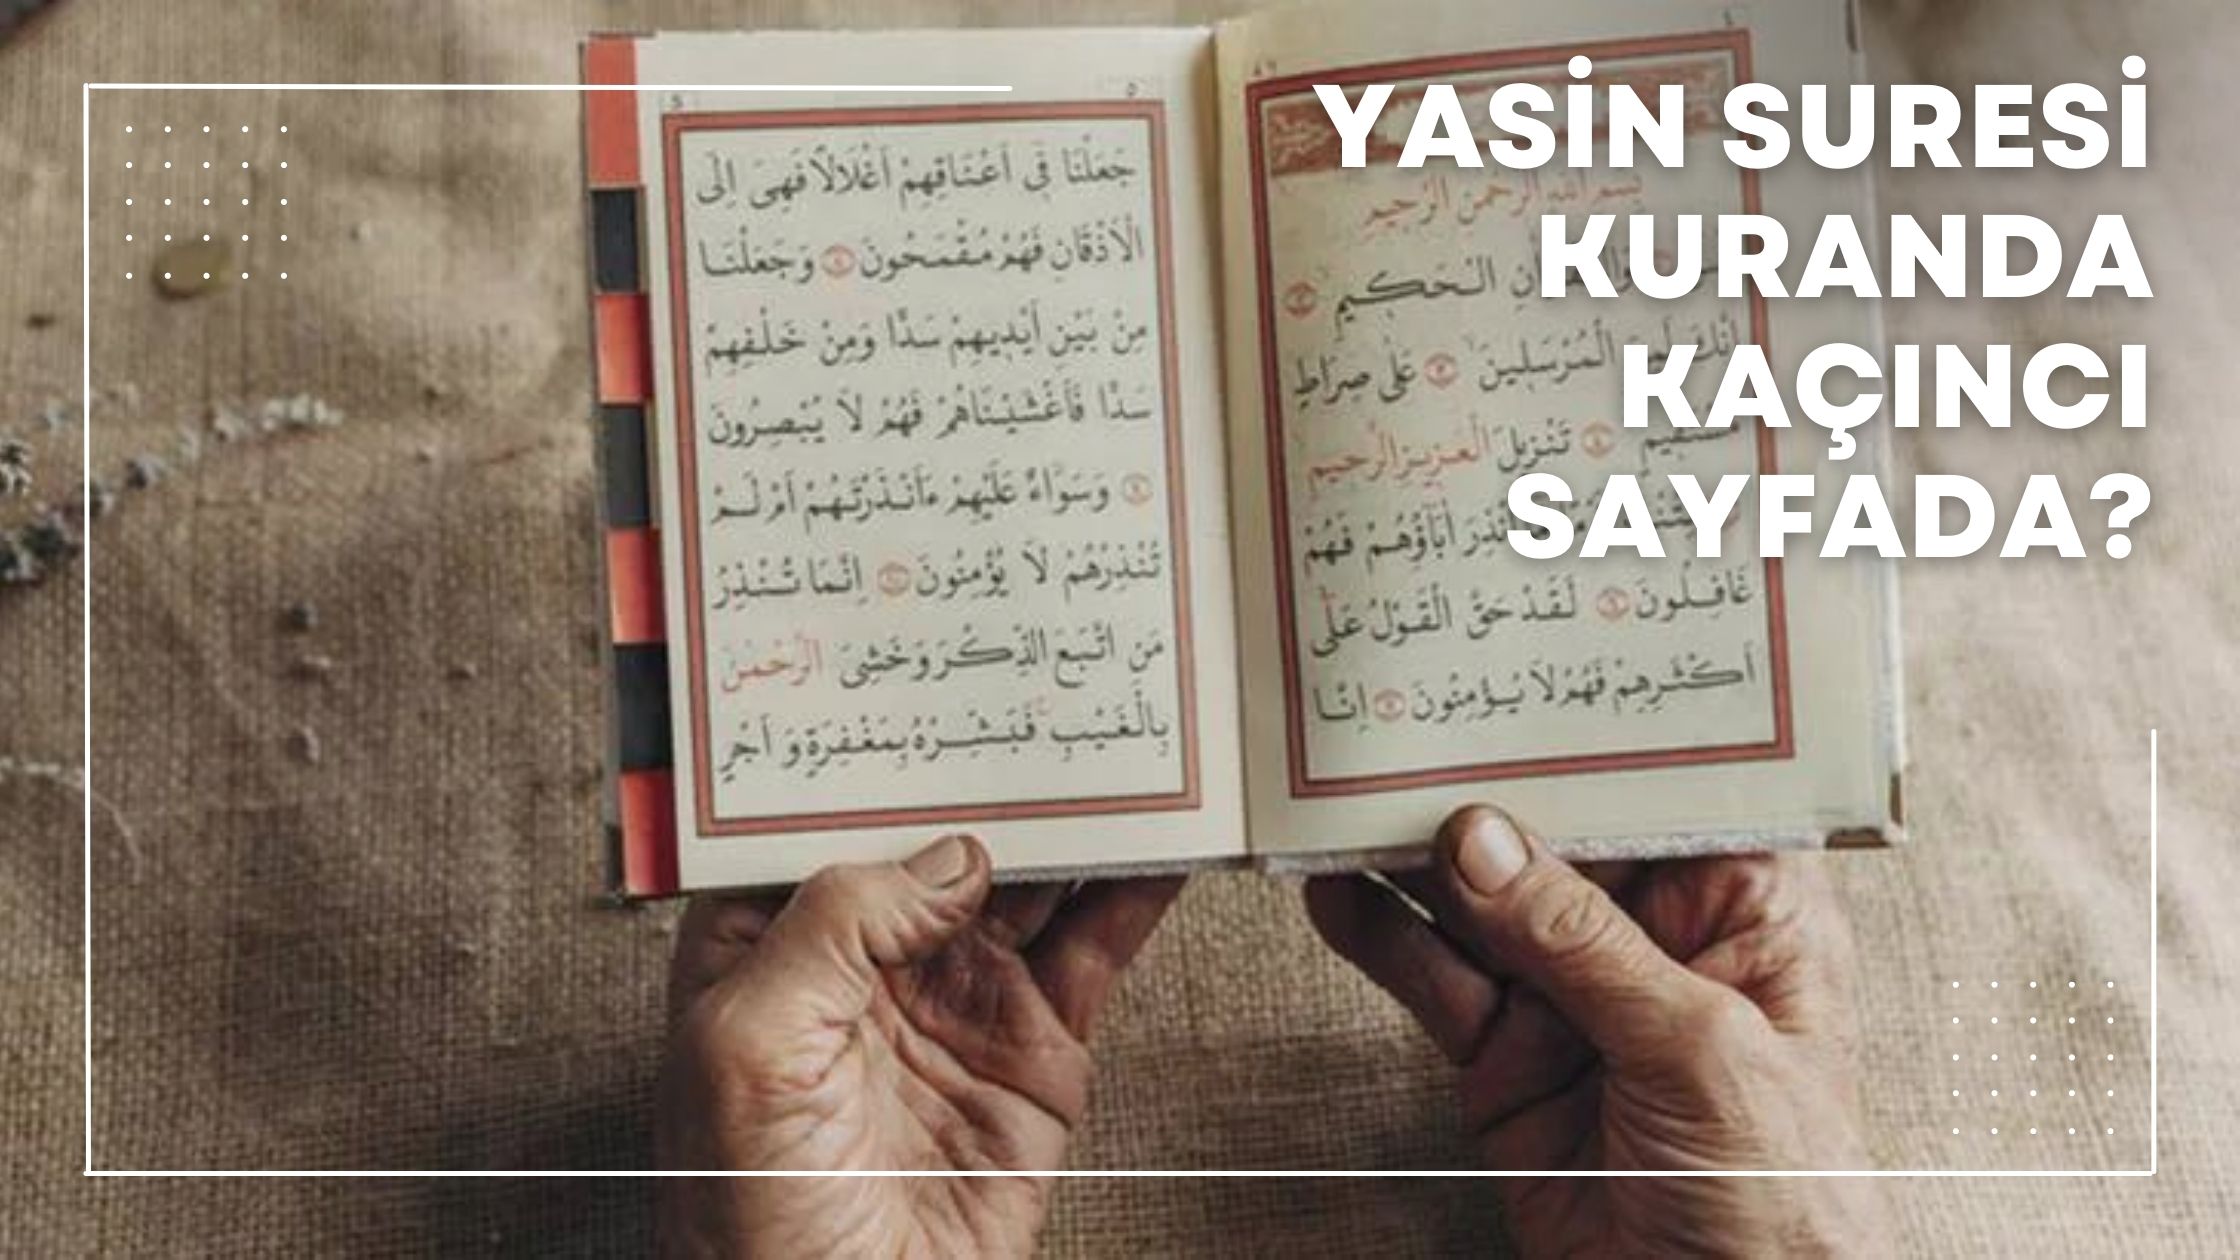 YASİN SURESİ
KURANDA
KAÇINCI
SAYFADA?
بِسْمِ اللهِ الرَّحْمٰنِ الرَّحِيمِ
الْحَكِيمِ
الْمُرْسَلِينَ عَلٰى صِرَاطٍ
مُسْتَقِيمٍ تَنْزِيلَ الْعَزِيزِ الرَّحِيمِ
اٰبَٓاؤُهُمْ فَهُمْ
غَافِلُونَ لَقَدْ حَقَّ الْقَوْلُ عَلٰٓى
اَكْثَرِهِمْ فَهُمْ لَا يُؤْمِنُونَ اِنَّا
5
جَعَلْنَا فِٓى اَعْنَاقِهِمْ اَغْلَالًا فَهِىَ اِلَى
الْاَذْقَانِ فَهُمْ مُقْمَحُونَ وَجَعَلْنَا
مِنْ بَيْنِ اَيْدِيهِمْ سَدًّا وَمِنْ خَلْفِهِمْ
سَدًّا فَاَغْشَيْنَاهُمْ فَهُمْ لَا يُبْصِرُونَ
وَسَوَٓاءٌ عَلَيْهِمْ ءَاَنْذَرْتَهُمْ اَمْ لَمْ
تُنْذِرْهُمْ لَا يُؤْمِنُونَ اِنَّمَا تُنْذِرُ
مَنِ اتَّبَعَ الذِّكْرَ وَخَشِىَ الرَّحْمٰنَ
بِالْغَيْبِ فَبَشِّرْهُ بِمَغْفِرَةٍ وَ اَجْرٍ